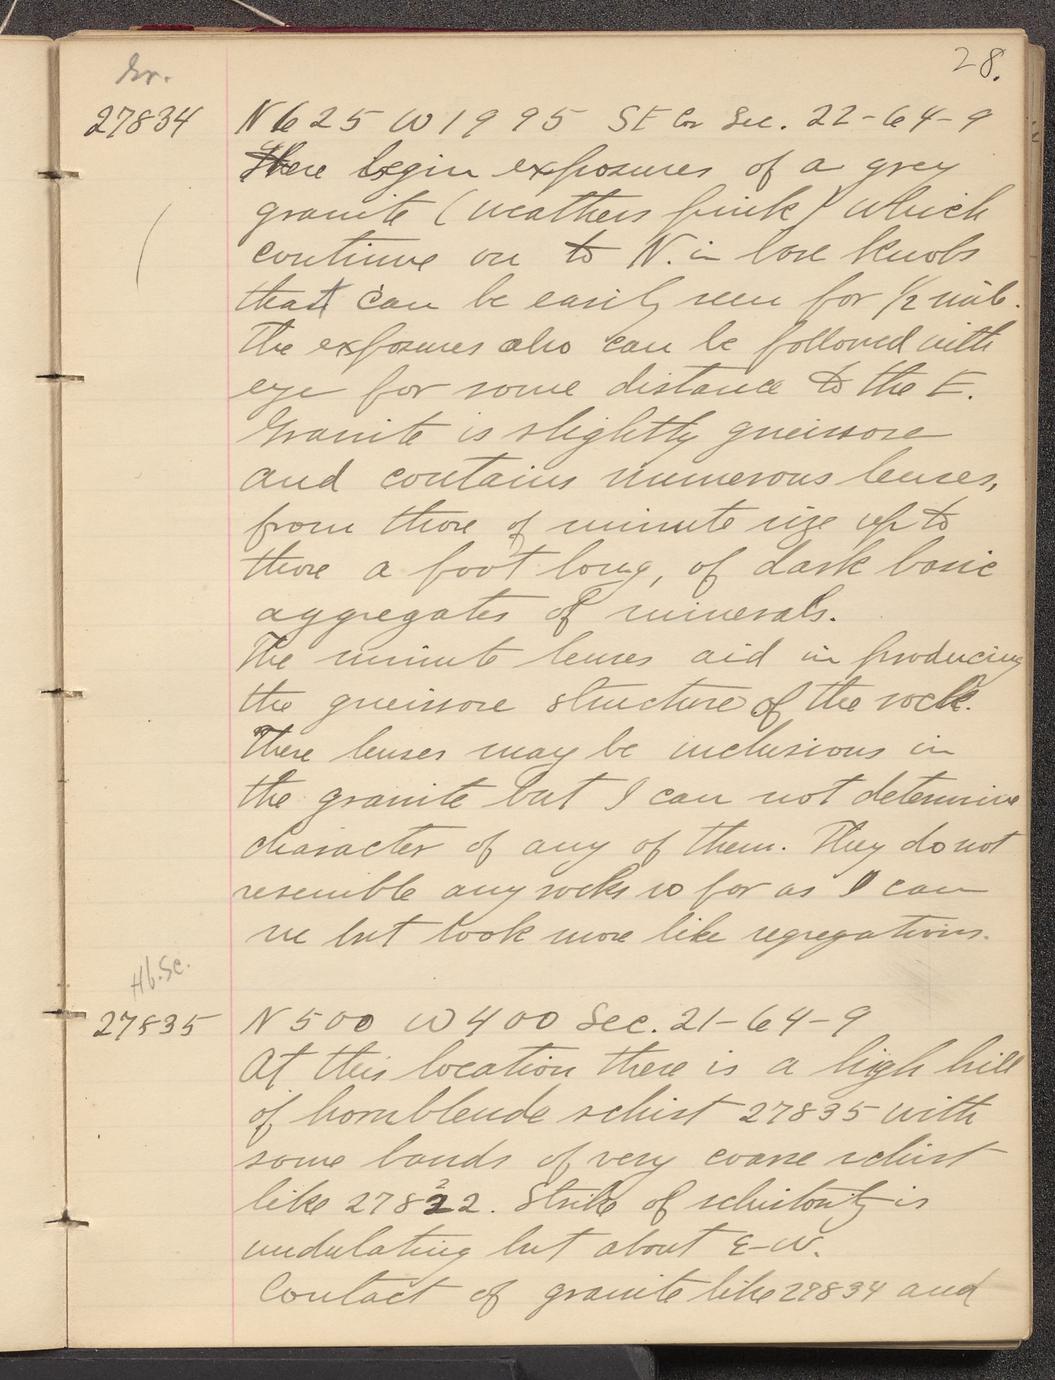 28.
Gr.
27834 N 625 W 1995 SE Cor Sec. 22-64-9
Here begin exposures of a grey
granite (weathers pink) which
continue on to N. in low knobs
that can be easily seen for 1/2 mile.
The exposures also can be followed with
eye for some distance to the E.
Granite is slightly gneissose
and contains numerous lenses,
from those of minute size up to
those a foot long, of dark basic
aggregates of minerals.
The minute lenses aid in producing
the gneissose structure of the rock.
These lenses may be inclusions in
the granite but I can not determine
character of any of them. They do not
resemble any rocks so far as I can
see but look more like segregations.
Hb. Sc.
27835 N 500 W 400 Sec. 21-64-9
At this location there is a high hill
of hornblende schist 27835 with
some bands of very coarse schist
like 27822. Strike of schistosity is
undulating but about E-W.
Contact of granite like 27834 and